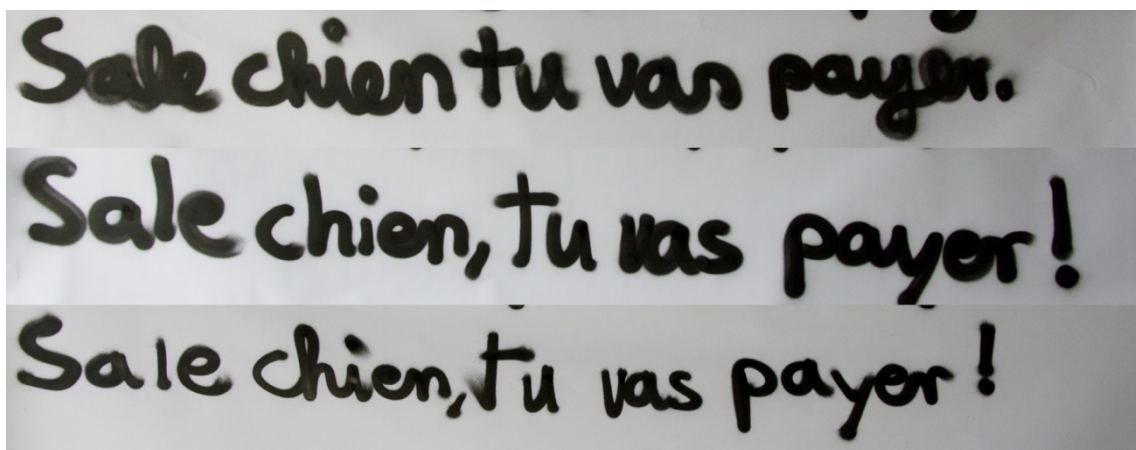 Sale chien tu vas payer.
Sale chien, tu vas payer !
Sale chien, tu vas payer !